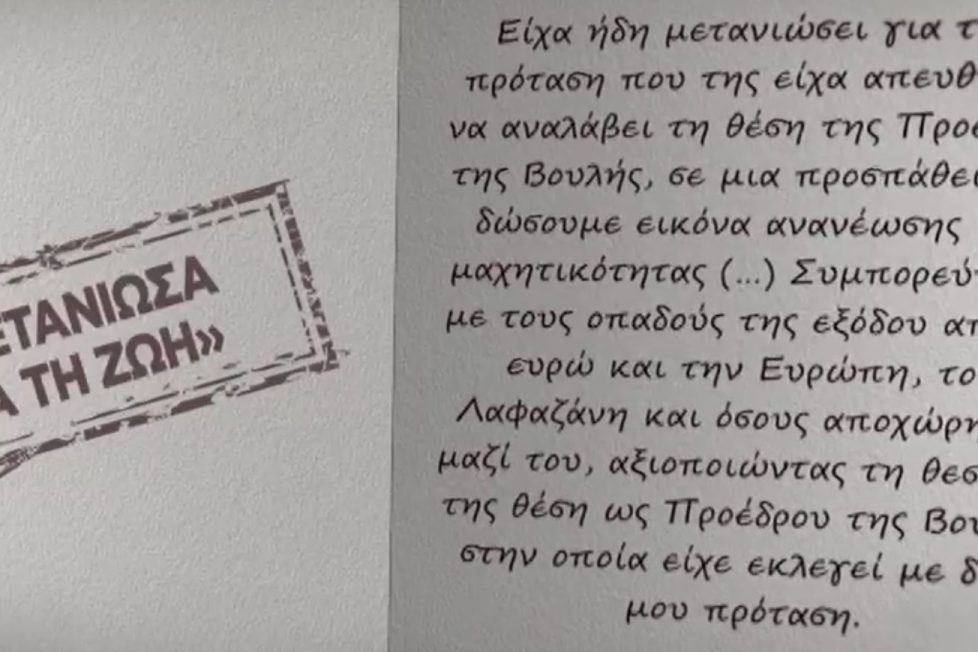 ΤΗ ΖΩΗ»
Είχα ήδη μετανιώσει για
πρόταση που της είχα
να αναλάβει τη θέση της
της Βουλής, σε μια
δώσουμε εικόνα ανανέωσης
μαχητικότητας (...)
με τους οπαδούς της εξόδου
ευρώ και την Ευρώπη,
Λαφαζάνη και όσους
μαζί του, αξιοποιώντας τη
της θέση ως Προέδρου της
στην οποία είχε εκλεγεί με
μου πρόταση.